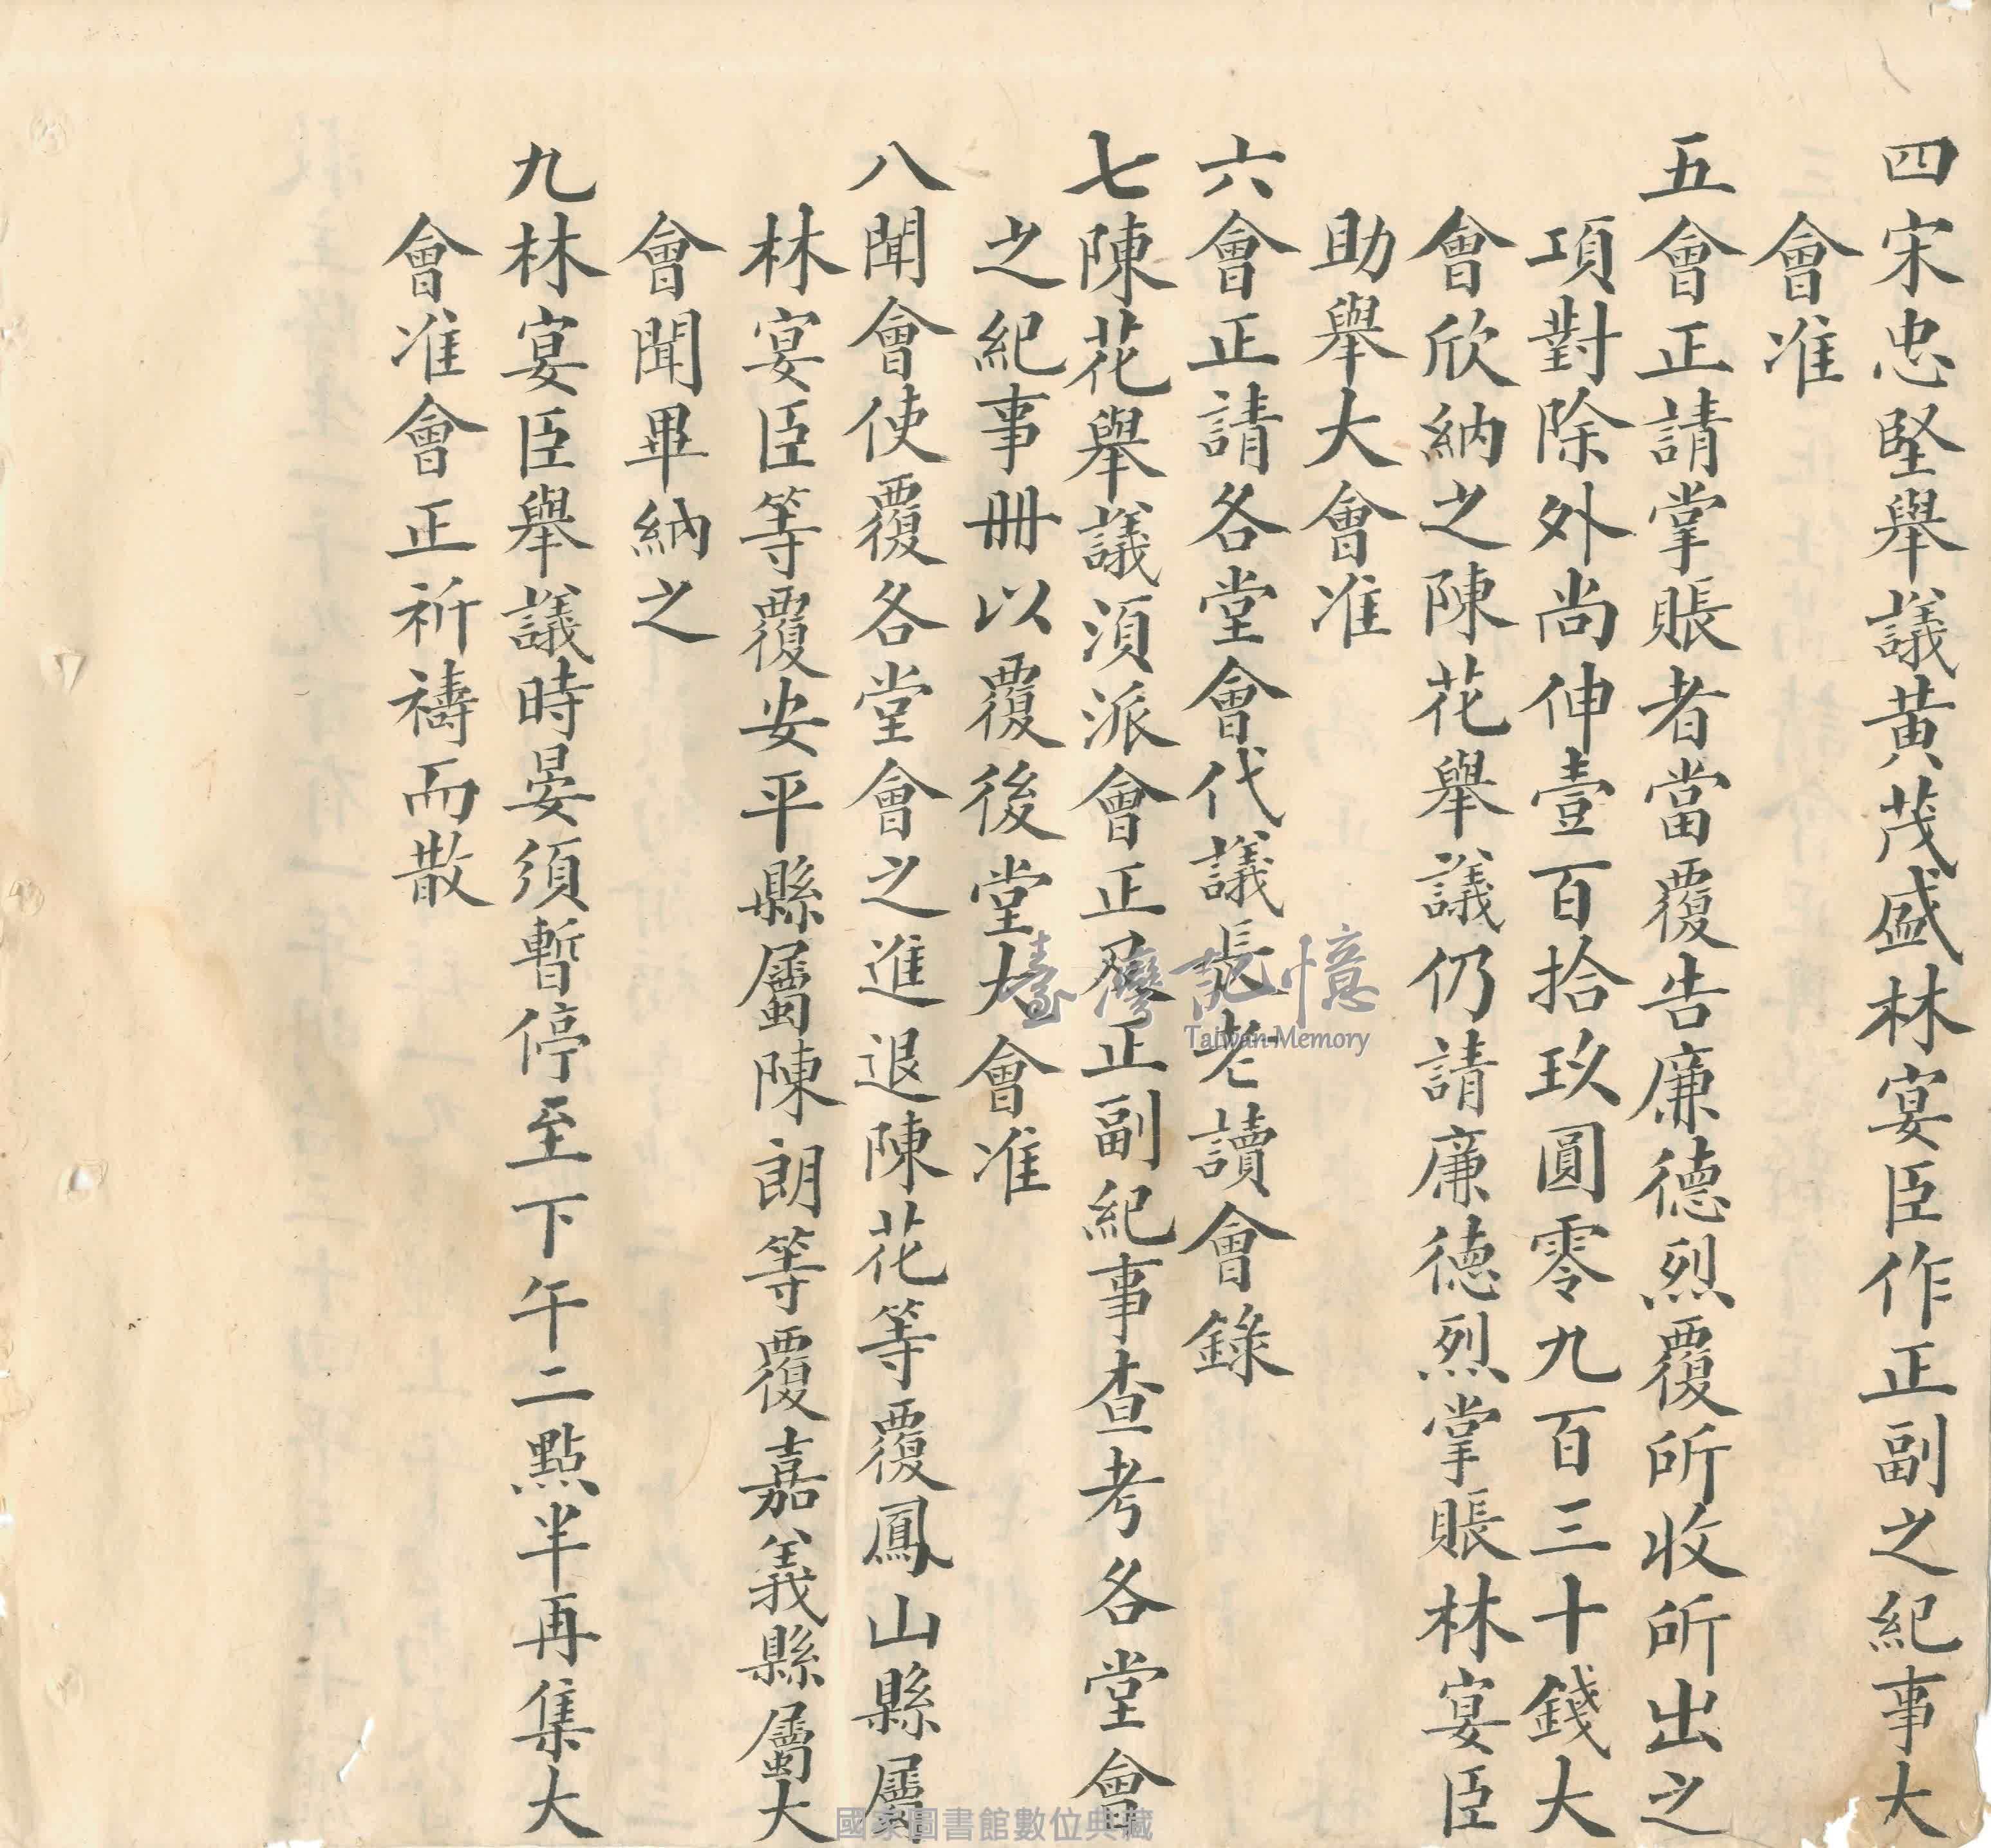 四宋忠堅舉議黃茂盛林宴臣作正副之紀事大
會准
五會正請掌賬者當覆告廉德烈覆所收所出之
項對除外尚伸壹百拾玖圓零九百三十錢大
會欣納之陳花舉議仍請廉德烈掌賬林宴臣
助舉大會准
六會正請各堂會代議長老讀會錄
七陳花舉議須派會正及正副紀事查考各堂會
之紀事冊以覆後堂大會准
八聞會使覆各堂會之進退陳花等覆鳳山縣屬
林宴臣等覆安平縣屬陳朗等覆嘉義縣屬大
會聞畢納之
九林宴臣舉議時晏須暫停至下午二點半再集大
會准會正祈禱而散
臺灣記憶
Taiwan Memory
國家圖書館數位典藏